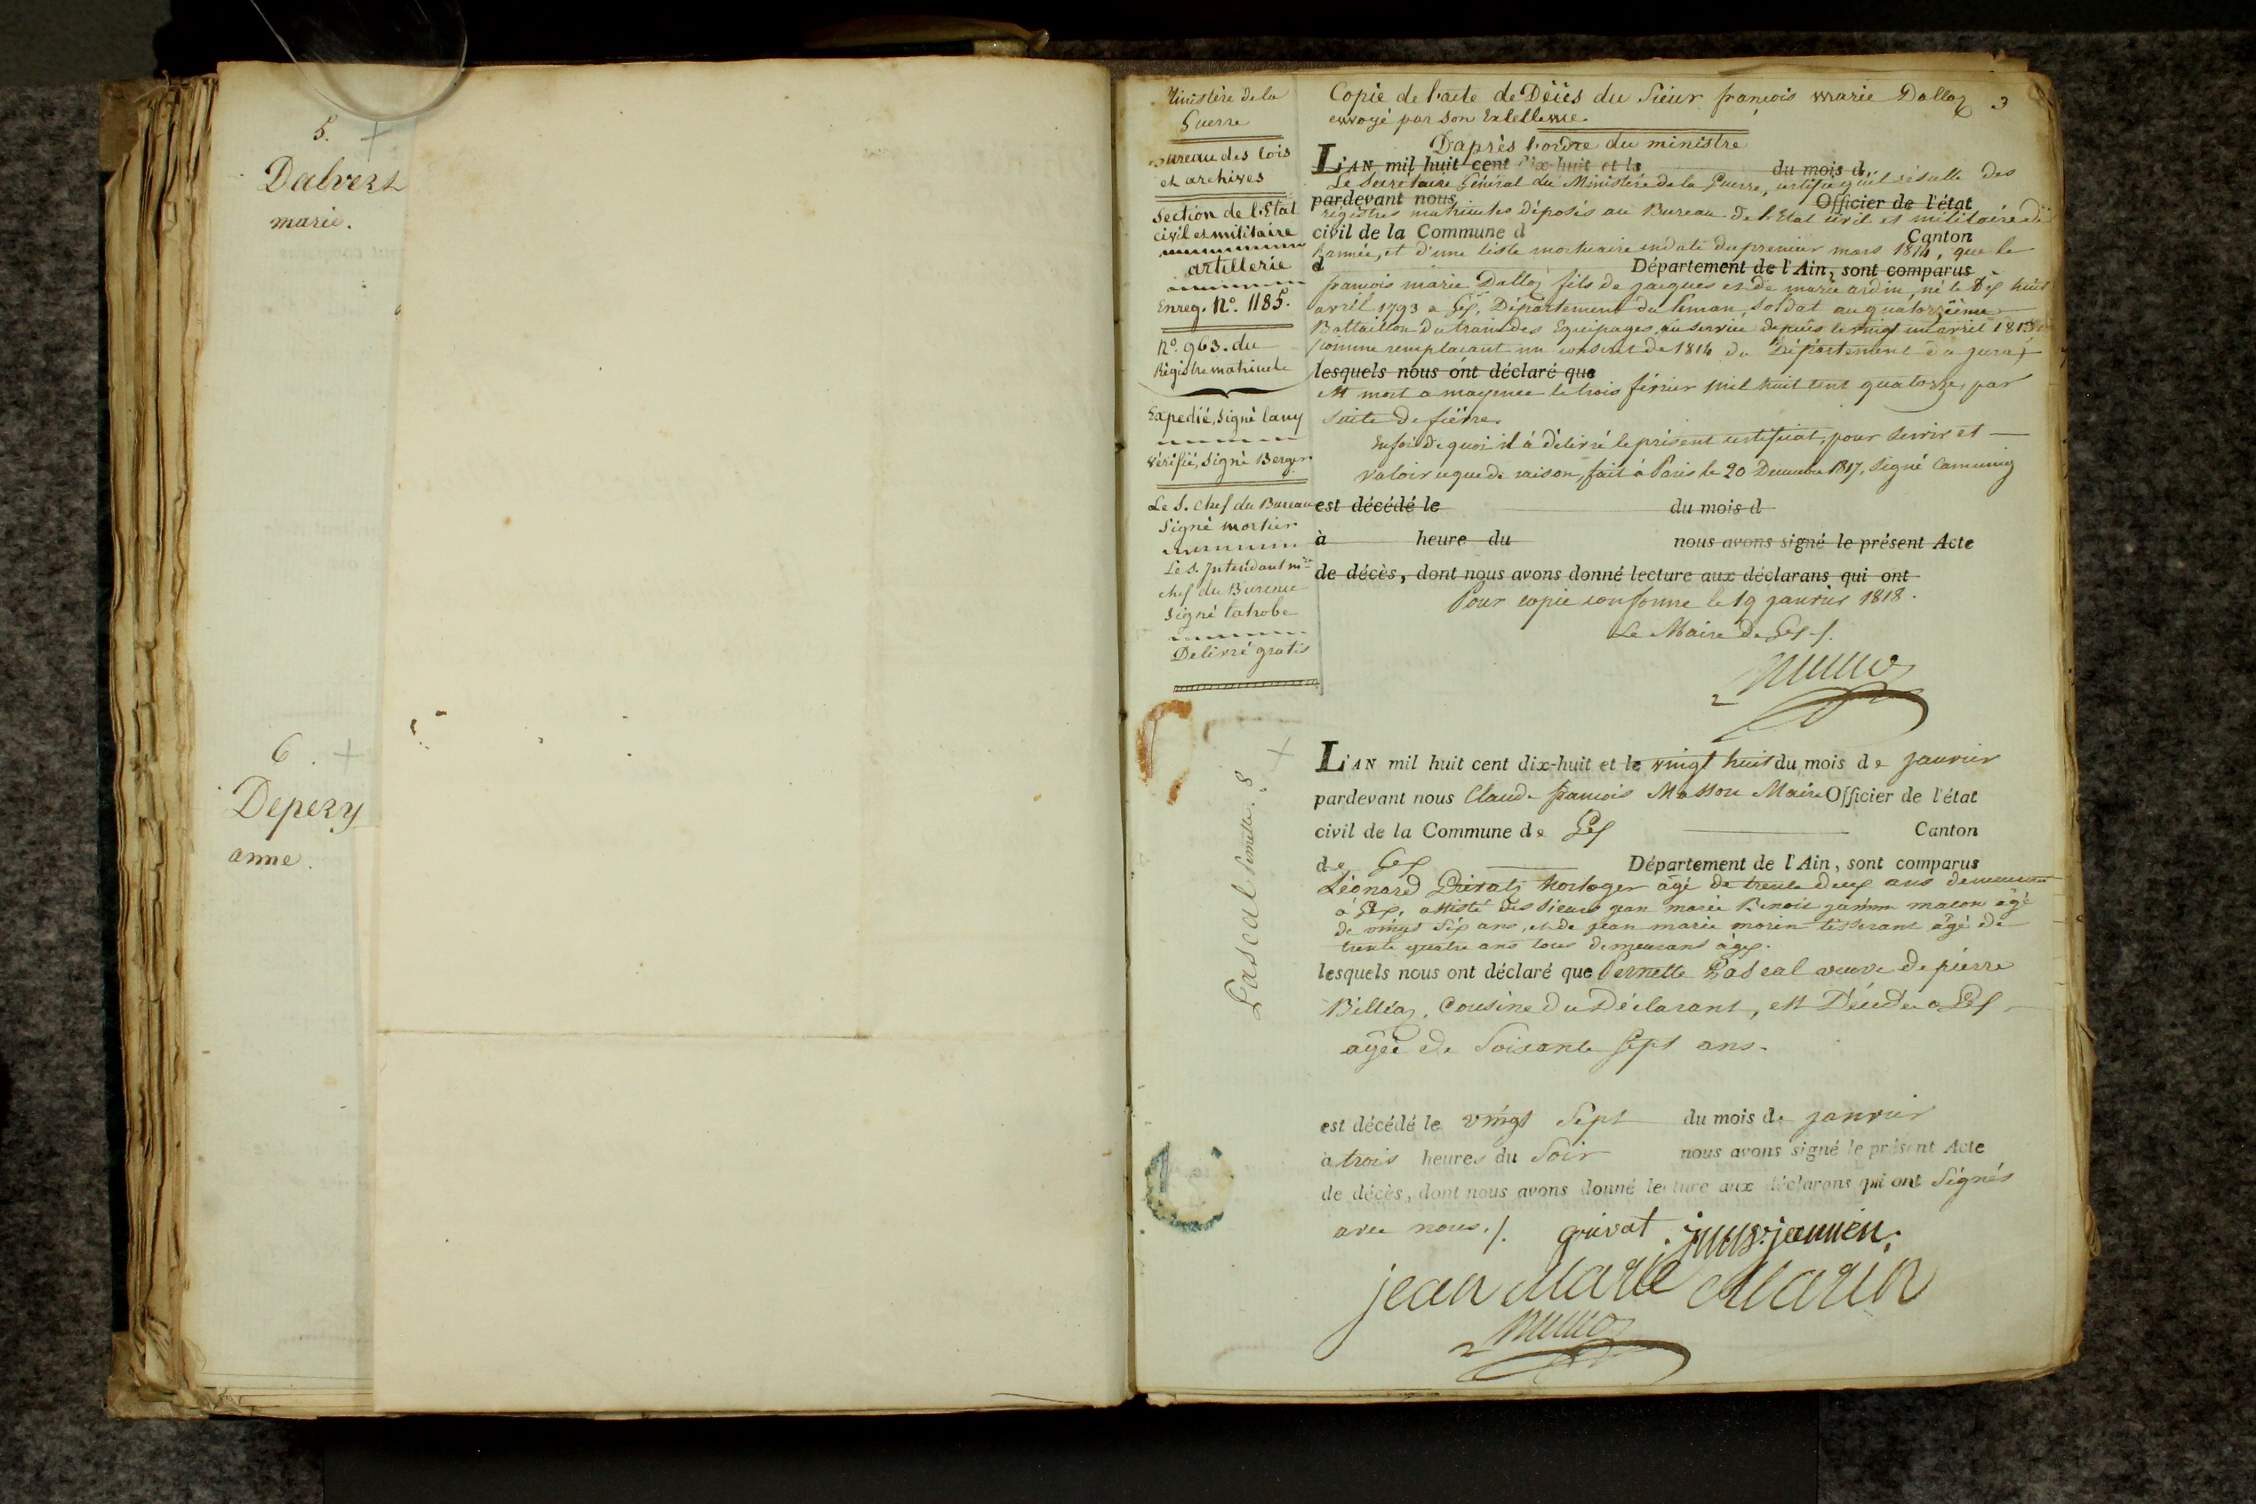 5.
Dalvert
marie.
6.
Depery
anne.
Ministère de la
Guerre
Bureau des lois
et archives
Section de l'Etat
civil et militaire
artillerie
Enreg. N.° 1185.
N.° 963. du
Régistre matricule
Expedié, signé lavy
vérifié, signé Berger
Le S. chef du Bureau
signé mortier
Le S. Intendant m.re
chef du Bureau
signé lahobe
Delivré gratis
3
Copie de l'acte de Décès du Sieur françois marie Dalloz
envoyé par son Exellence.
D'après l'ordre du ministre
L'AN mil huit cent dix-huit et le du mois d
Le Secretaire Général du Ministère de la Guerre, certifie qu'il résulte des
pardevant nous Officier de l'état
régistres matricules déposés au Bureau de l'Etat civil et militaire de
civil de la Commune d Canton
l'armée, et d'une liste mortuaire en date du premier mars 1814, que le
d Département de l'Ain, sont comparus
françois marie Dalloz fils de jacques et de marie ardin, né le dix huit
avril 1793 a Gex, Département du Leman, soldat au quatorzième
Battaillon du train des Equipages, au service depuis le vingt un avril 1813
comme remplacant un conscrit de 1814 du Département du jura)
lesquels nous ont déclaré que
est mort a mayence le trois février mil huit cent quatorze, par
suite de fièvre.
En foi de quoi il à délivré le présent certificat, pour servir et
valoir ce que de raison, fait à Paris le 20 Decembre 1817, signé
est décédé le du mois d
à heure du nous avons signé le présent Acte
de décès, dont nous avons donné lecture aux déclarans qui ont
Pour copie conforme le 19 janvier 1818.
Le Maire de Gex ./.
Pascal Pernette. 8
L'AN mil huit cent dix-huit et le vingt huit du mois de janvier
pardevant nous Claude françois Masson Maire Officier de l'état
civil de la Commune de Gex Canton
de Gex Département de l'Ain, sont comparus
Léonard Privat horloger âgé de trente deux ans demeurant
à Gex, assisté des sieurs jean marie Benoit macon âgé
de vingt six ans, et de jean marie morin tisserant âgé de
trente quatre ans tous demeurans à gex.
lesquels nous ont déclaré que Pernette Pascal veuve de pierre
Billiaz, Cousine du Déclarant, est Décédée a Gex
agée de Soixante sept ans.
est décédé le vingt sept du mois de janvier
à trois heures du Soir nous avons signé le présent Acte
de décès, dont nous avons donné lecture aux déclarans qui ont Signés
avec nous ./. privat
jean Marie Marin